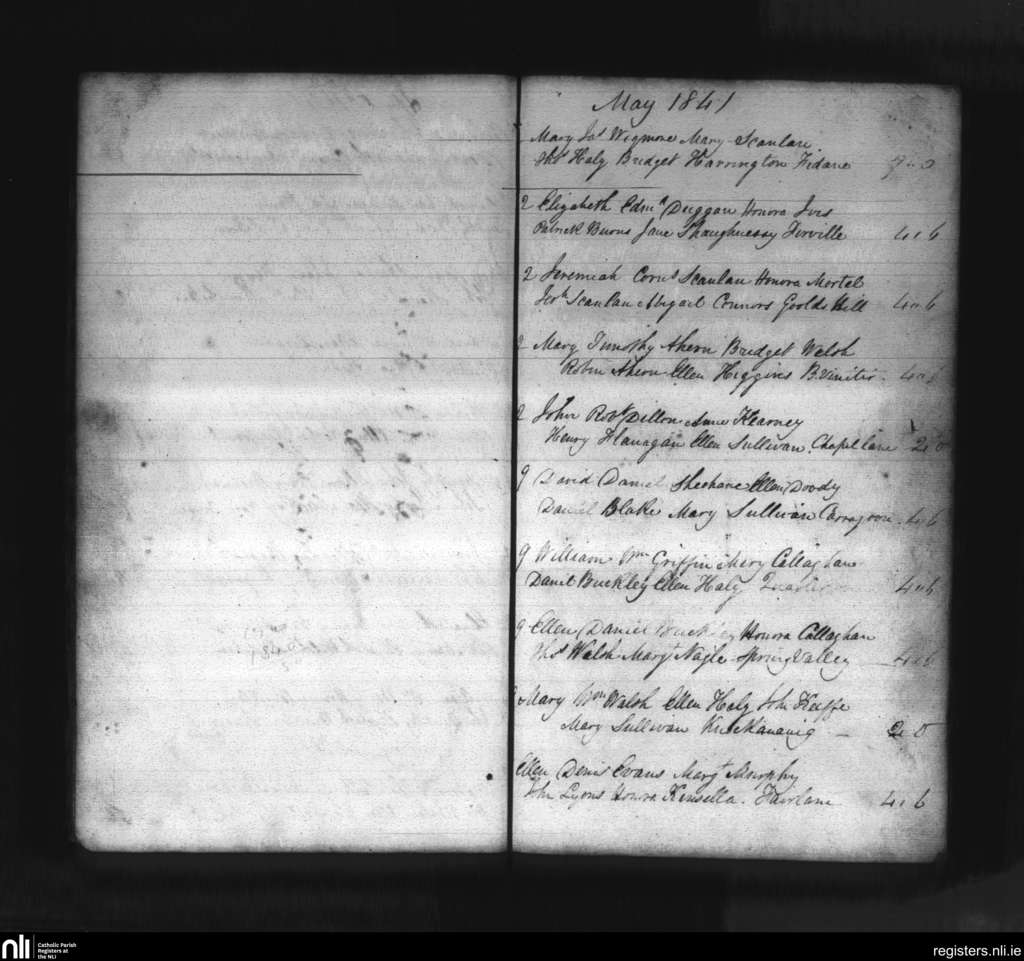 May 1841
Mary Jas Wigmore Mary Scanlan
Thos Haly Bridget Harrington Fidane 7 " 0
2 Elizabeth Edmd Duggan Honora Ives
Patrick Burns Jane Shaughnessy Firville 4 " 6
2 Jeremiah Corns Scanlan Honora Mortel
Jerh Scanlan Abigail Connors Goolds Hill 4 " 6
2 Mary Timothy Ahern Bridget Walsh
Robin Ahern Ellen Higgins 4 "
2 John Robt Dillon Anne Kearney
Henry Flanagan Ellen Sullivan Chapel lane 2 " 0
9 David Daniel Sheehane Ellen Doody
Daniel Blake Mary Sullivan Carragoon 4 " 6
9 William Wm Griffin Mary Callaghan
Danl Buckley Ellen Haly 4 " 6
9 Ellen Daniel Buckley Honora Callaghan
Thos Walsh Margt Nagle Spring Valley 4 " 6
Mary Wm Walsh Ellen Haly John Keeffe
Mary Sullivan 2 " 0
Ellen Denis Evans Margt Murphy
John Lyons Honora Kinsella Fairlane 4 " 6
nli Catholic Parish
Registers at
the NLI
registers.nli.ie